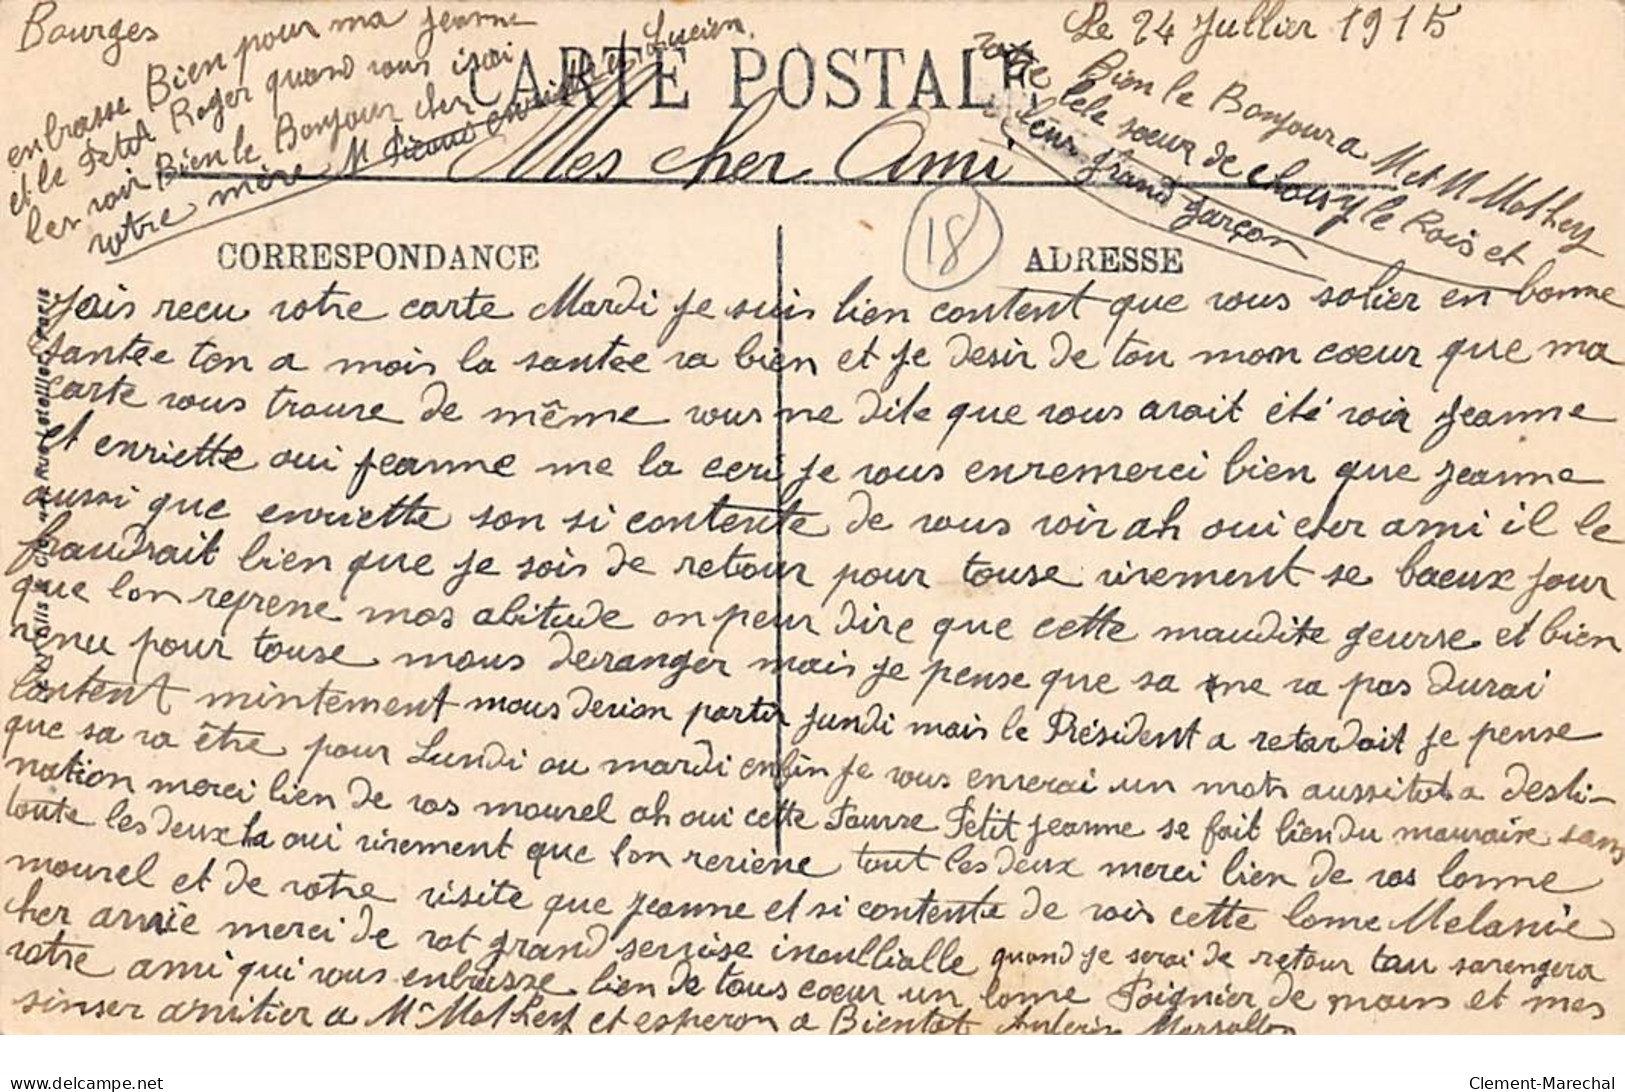 Bourges
Le 24 Jullier 1915
CARTE POSTALE
Mes cher Ami
enbrasse Bien pour ma Jeanne
et le Petit Roger quand vous irai
les voir Bien le Bonjour cher
votre mère M Lucien.
Bien le Bonjour a M et M Mathey
votre soeur de Choisy le Rois et
leur grand garçon
18
CORRESPONDANCE
ADRESSE
Jais recu votre carte Mardi je suis bien content que vous soller en bonne
santée ton a mois la santee va bien et je desir de tou mon coeur que ma
carte vous trouve de même vous me dite que vous avait été voir Jeanne
et enriette oui jeanne me la ecri je vous enremerci bien que jeanne
aussi que enriette son si contente de vous voir ah oui cher ami il le
fraudrait bien que je sois de retour pour touse virement se baeux jour
que lon reprene mos abitude on peur dire que cette maudite geurre et bien
venu pour touse mous deranger mais je pense que sa ne va pas durai
lontent mintement mous derion partir jundi mais le Président a retardait je pense
que sa va être pour Lundi ou mardi enfin je vous enverai un mots aussitot a desti-
nation merci bien de vos mouvel ah oui cette Pauvre Petit jeanne se fait bien du mauvaix sans
toute les deux la oui virement que lon reviene tout les deux merci bien de vos bonne
mouvel et de votre visite que jeanne et si contente de vois cette bonne Melanie
cher amie merci de vot grand servise inoulliable quand je serai de retour tau sarengera
votre ami qui vous enbrasse bien de tous coeur un bonne Poignier de mains et mes
sinser amitier a Mr Mathey et esperon a Bientot
Clement-Marechal
www.delcampe.net